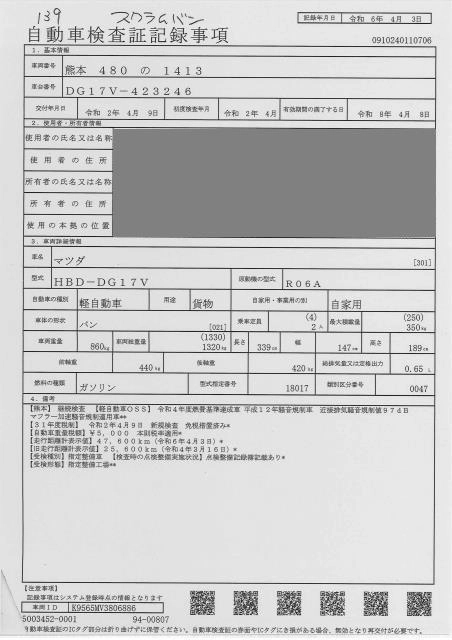 139 スクラムバン
記録年月日 令和 6年 4月 3日
自動車検査証記録事項
0910240110706
1. 基本情報
車両番号 熊本 480 の 1413
車台番号 DG17V-423246
交付年月日 令和 2年 4月 9日 初度検査年月 令和 2年 4月 有効期間の満了する日 令和 8年 4月 8日
2. 使用者・所有者情報
使用者の氏名又は名称
使用者の住所
所有者の氏名又は名称
所有者の住所
使用の本拠の位置
3. 車両詳細情報
車名 マツダ [301]
型式 HBD-DG17V 原動機の型式 R06A
自動車の種別 軽自動車 用途 貨物 自家用・事業用の別 自家用
車体の形状 バン [021] 乗車定員 (4) 2人 最大積載量 (250) 350kg
車両重量 860kg 車両総重量 (1330) 1320kg 長さ 339cm 幅 147cm 高さ 189cm
前軸重 440kg 後軸重 420kg 総排気量又は定格出力 0.65 L
燃料の種類 ガソリン 型式指定番号 18017 類別区分番号 0047
4. 備考
【熊本】 継続検査 【軽自動車OSS】 令和4年度燃費基準達成車 平成12年騒音規制車 近接排気騒音規制値97dB
マフラー加速騒音規制適用車**
【31年度税制】 令和2年4月9日 新規検査 免税措置済み*
【自動車重量税額】¥5,000 本則税率適用*
【走行距離計表示値】47,600km(令和6年4月3日)*
【旧走行距離計表示値】25,600km(令和4年3月16日)*
【受検種別】指定整備車 【検査時の点検整備実施状況】点検整備記録簿記載あり*
【受検形態】指定整備工場**
【注意事項】
記録事項はシステム登録時点の情報となります
車両ID K9565MV3806886
5003452-0001 94-00807
自動車検査証のICタグ部分は折り曲げずに保管ください。自動車検査証の券面やICタグにき損がある場合、無効となり再交付が必要です。